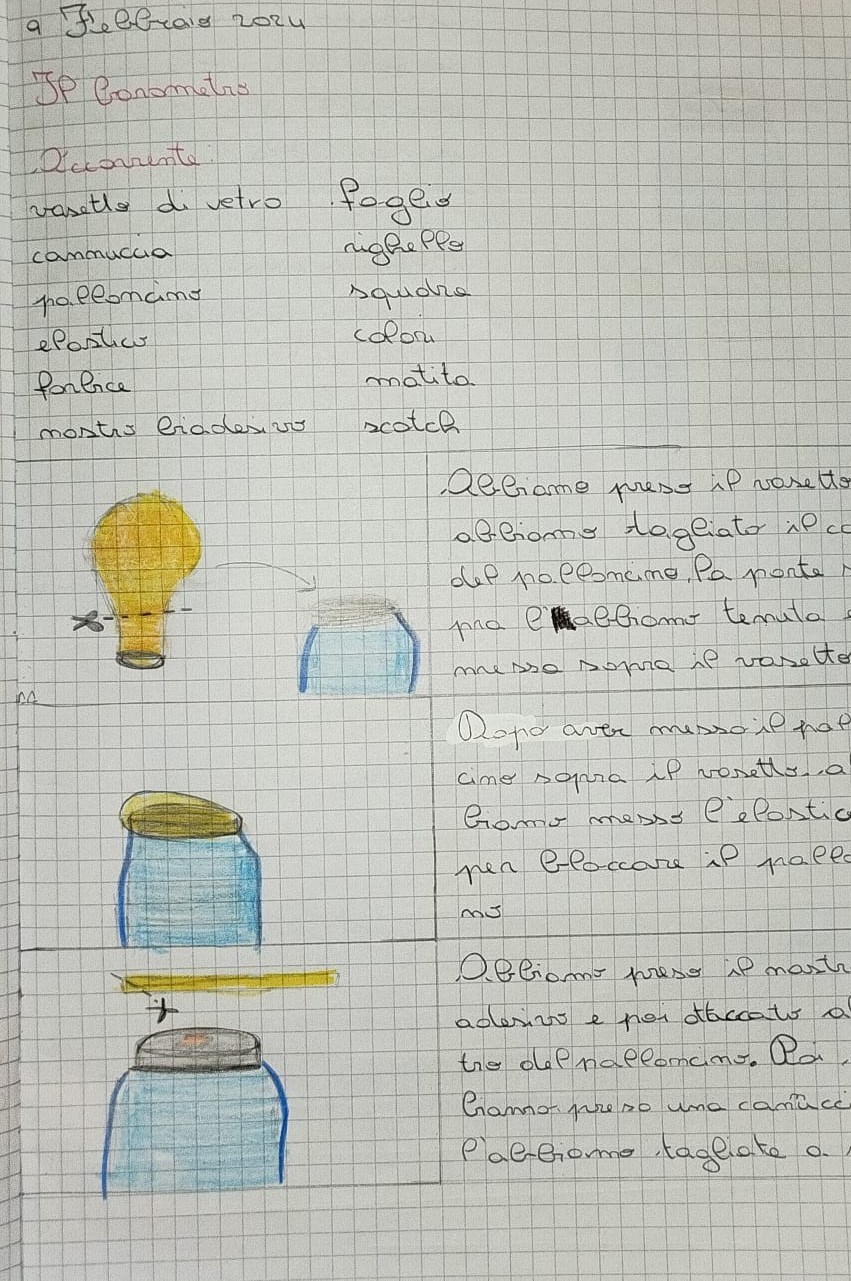 9 Febbraio 2024
Il barometro
Occorrente:
vasetto di vetro foglio
cannuccia righello
palloncino squadra
elastico colori
forbice matita
nastro biadesivo scotch
Abbiamo preso il vasetto
abbiamo tagliato il co
del palloncino, la parte s
pra e abbiamo tenuta
messo sopra il vasetto
Dopo aver messo il pal
cino sopra il vasetto a
biamo messo l'elastic
per bloccare il pallo
no
Abbiamo preso il nastr
adesivo e poi attaccato al
tro del palloncino. Poi
biamo preso una canucci
l'abbiamo tagliata a